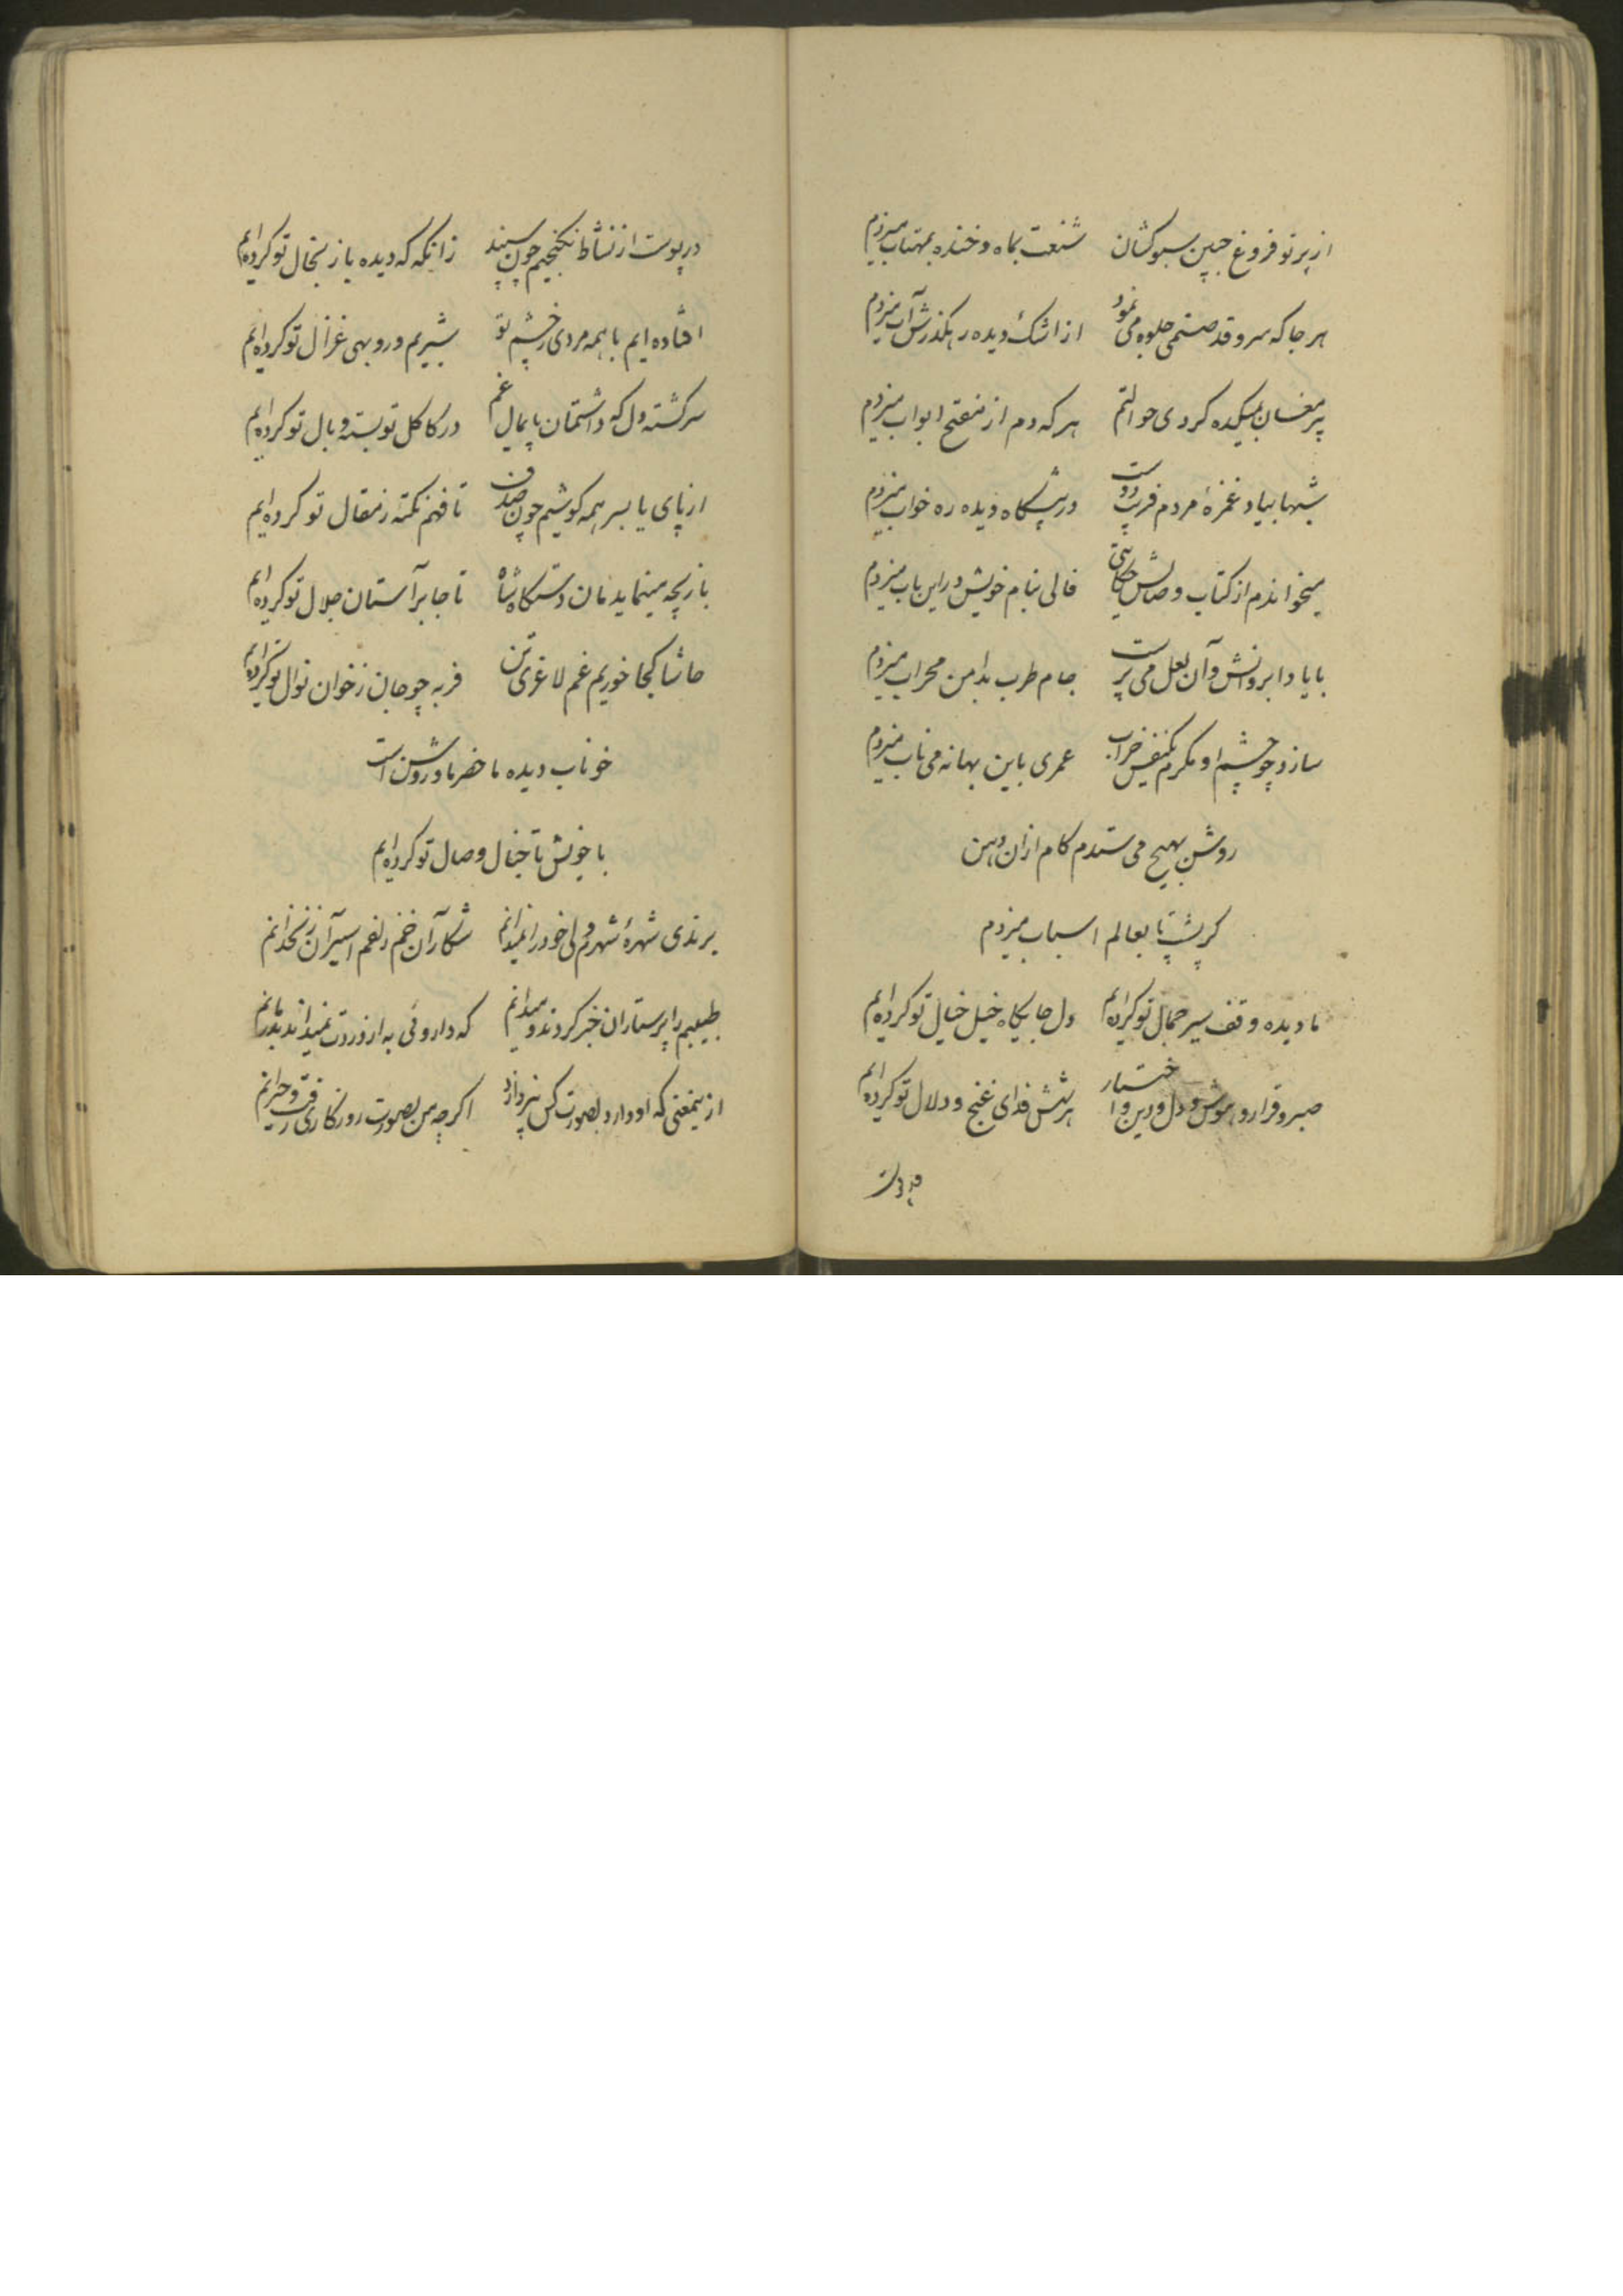 از پرتو فروغ جبین سبوکشان شنعت بماه و خنده بمهتاب میزدم
هر جا که سرو قد صنمی جلوه می نمود از اشک دیده رهگذرش آب میزدم
پیر مغان بمیکده کردی حوالتم هر که دم از مفتح ابواب میزدم
شبها بیاد غمزهٔ مردم فریب دوست در پیشگاه دیده ره خواب میزدم
میخواندم از کتاب وصالش حکایتی فالی بنام خویش در این باب میزدم
با یاد ابروانش و آن لعل می پرست جام طرب بدامن محراب میزدم
سازد چو چشم او مکرم یکنفس خراب عمری باین بهانه می ناب میزدم
روشن بهیچ می ستدم کام ازان دهن
کر پشت پا بعالم اسباب میزدم
ما دیده وقف سیر جمال تو کرده‌ایم دل جایگاه خیل خیال تو کرده‌ایم
صبر و قرار و هوش و دل و دین و اختیار هر شش فدای غنج و دلال تو کرده‌ایم
در پوست از نشاط نکنجیم چون سپند زانکه که دیده باز بخال تو کرده‌ایم
افتاده‌ایم با همه مردی ز چشم تو شیریم و روبهی غزال تو کرده‌ایم
سرکشته دل که داشتمان پایمال غم در کاکل تو بسته و بال تو کرده‌ایم
از پای تا بسر همه کوشیم چون صدف تا فهم نکته ز مقال تو کرده‌ایم
بازیچه مینماید مان دستکاه شاه تا جا بر آستان جلال تو کرده‌ایم
حاشا کجا خوریم غم لاغری تن فربه چو جان ز خوان نوال تو کرده‌ایم
خوناب دیده ما حضر ما و روشن است
با خویش تا خیال وصال تو کرده‌ایم
برندی شهرهٔ شهرم ولی خود را نمیدانم شکار آن خم زلفم اسیر آن زنخدانم
طبیبم را پرستاران خبر کردند و میدانم که داروئی به از دردت نمیداند بدرمانم
از ینمعنی که او دارد بصورت کس نپردازد اکرچه من بصورت روزکاری رفت و حیرانم